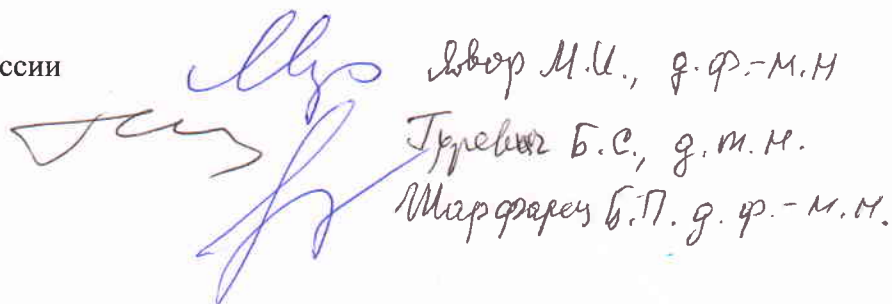 ссии
Явор М.И., д.ф.-м.н
Гуревич Б.С., д.т.н.
Шарфарец Б.П. д.ф.-м.н.